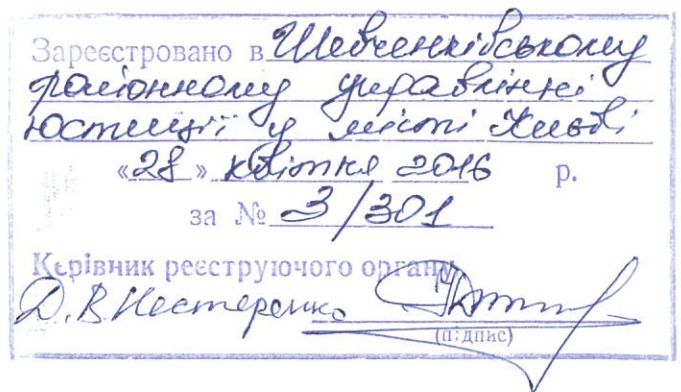 Зареєстровано в Шевченківському
районному управлінні
юстиції у місті Києві
«28» квітня 2016 р.
за № 3/301
Керівник реєструючого органу
Д.В Нестеренко
(підпис)